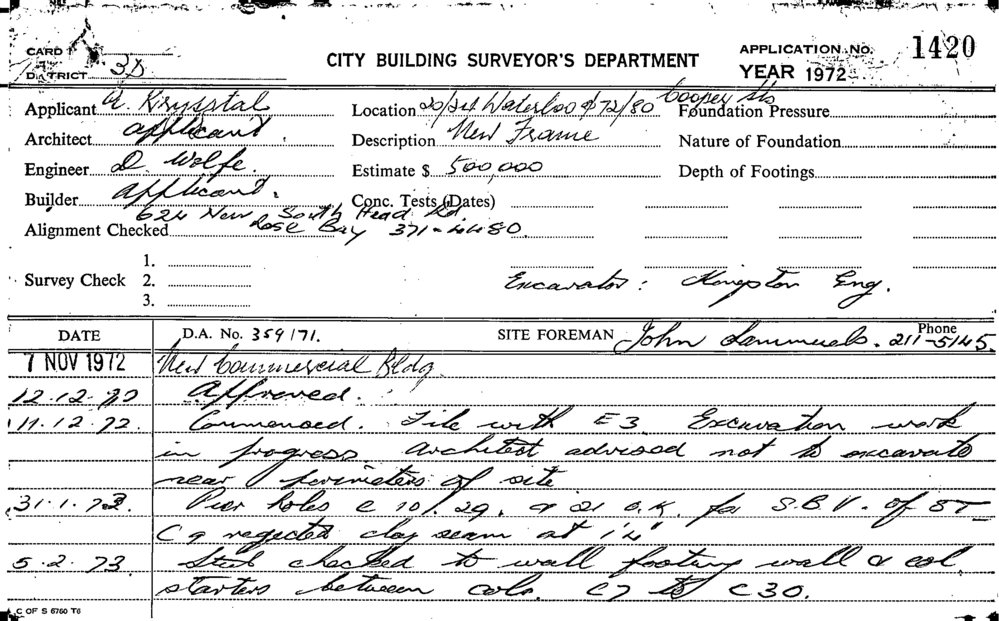 CARD 1
DISTRICT 3D
CITY BUILDING SURVEYOR'S DEPARTMENT
APPLICATION NO. 1420
YEAR 1972
Applicant A. Krystal
Location 20/24 Waterloo & 72/80 Cooper Sts
Foundation Pressure
Architect applicant
Description New Frame
Nature of Foundation
Engineer D. Wolfe.
Estimate $ 500,000
Depth of Footings
Builder Applicant.
Conc. Tests (Dates)
624 New South Head Rd.
Alignment Checked Rose Bay 371-4480
1.
Survey Check 2.
3.
Excavator: Kingston Eng.
DATE D.A. No. 359/71. SITE FOREMAN John Sammuels. Phone 211-5145.
7 NOV 1972 New Commercial Bldg
12.12.72 Approved.
11.12.72. Commenced. File with E3. Excavation work
in progress. Architect advised not to excavate
near perimeters of site
31.1.73. Pier holes C 10, 29, & 21 O.K. for S.B.V. of 8T
C9 rejected clay seam at 1'4"
5.2.73 Steel checked to wall footing wall & col
starters between cols. C7 to C30.
C OF S 6760 T6